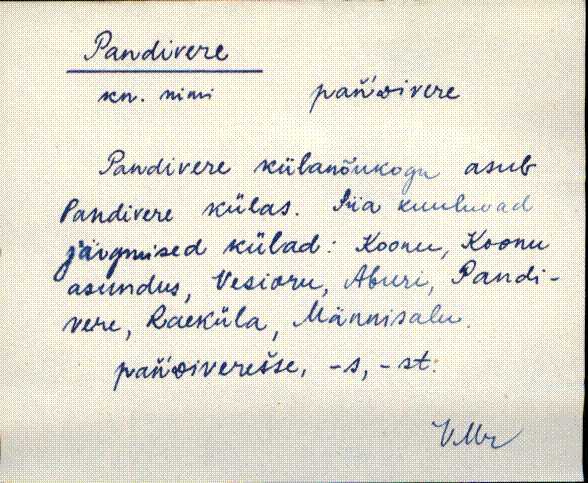 Pandivere
kn. nimi pań'divere
Pandivere külanõukogu asub
Pandivere külas. Siia kuuluvad
järgmised külad: Koonu, Koonu
asundus, Vesioru, Aburi, Pandi-
vere, Raeküla, Männisalu.
pań'diveresse, -s, -st.
VMr